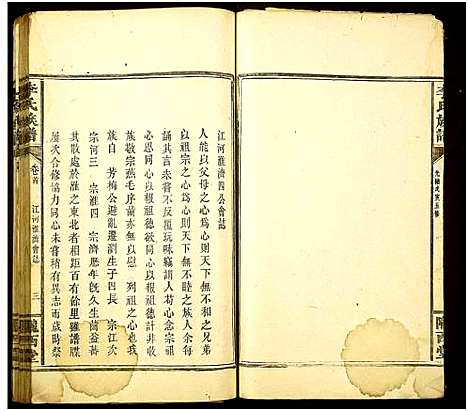 李氏族譜
光緒戊寅五修
隴西堂
江河淮濟四公會誌
人能以父母之心為心則天下無不友之兄弟
以祖宗之心為心則天下無不睦之族人余每
言其言未嘗不反覆玩味竊謂人苟心念宗祖
必思同心以報祖德欲同心以報祖德計非收
族敬宗燕毛序齒亦無以慰 列祖之心今我
族自 芳梅公避亂遷瀏生子四長 宗江次
宗河三 宗淮四 宗濟歷年旣久生齒益蕃
其散處於雁之東北者相距百有餘里雖譜牒
屢次合修協力同心未嘗稍有異志而歲時祭
李氏族譜
卷首
江河淮濟會誌
三
隴西堂